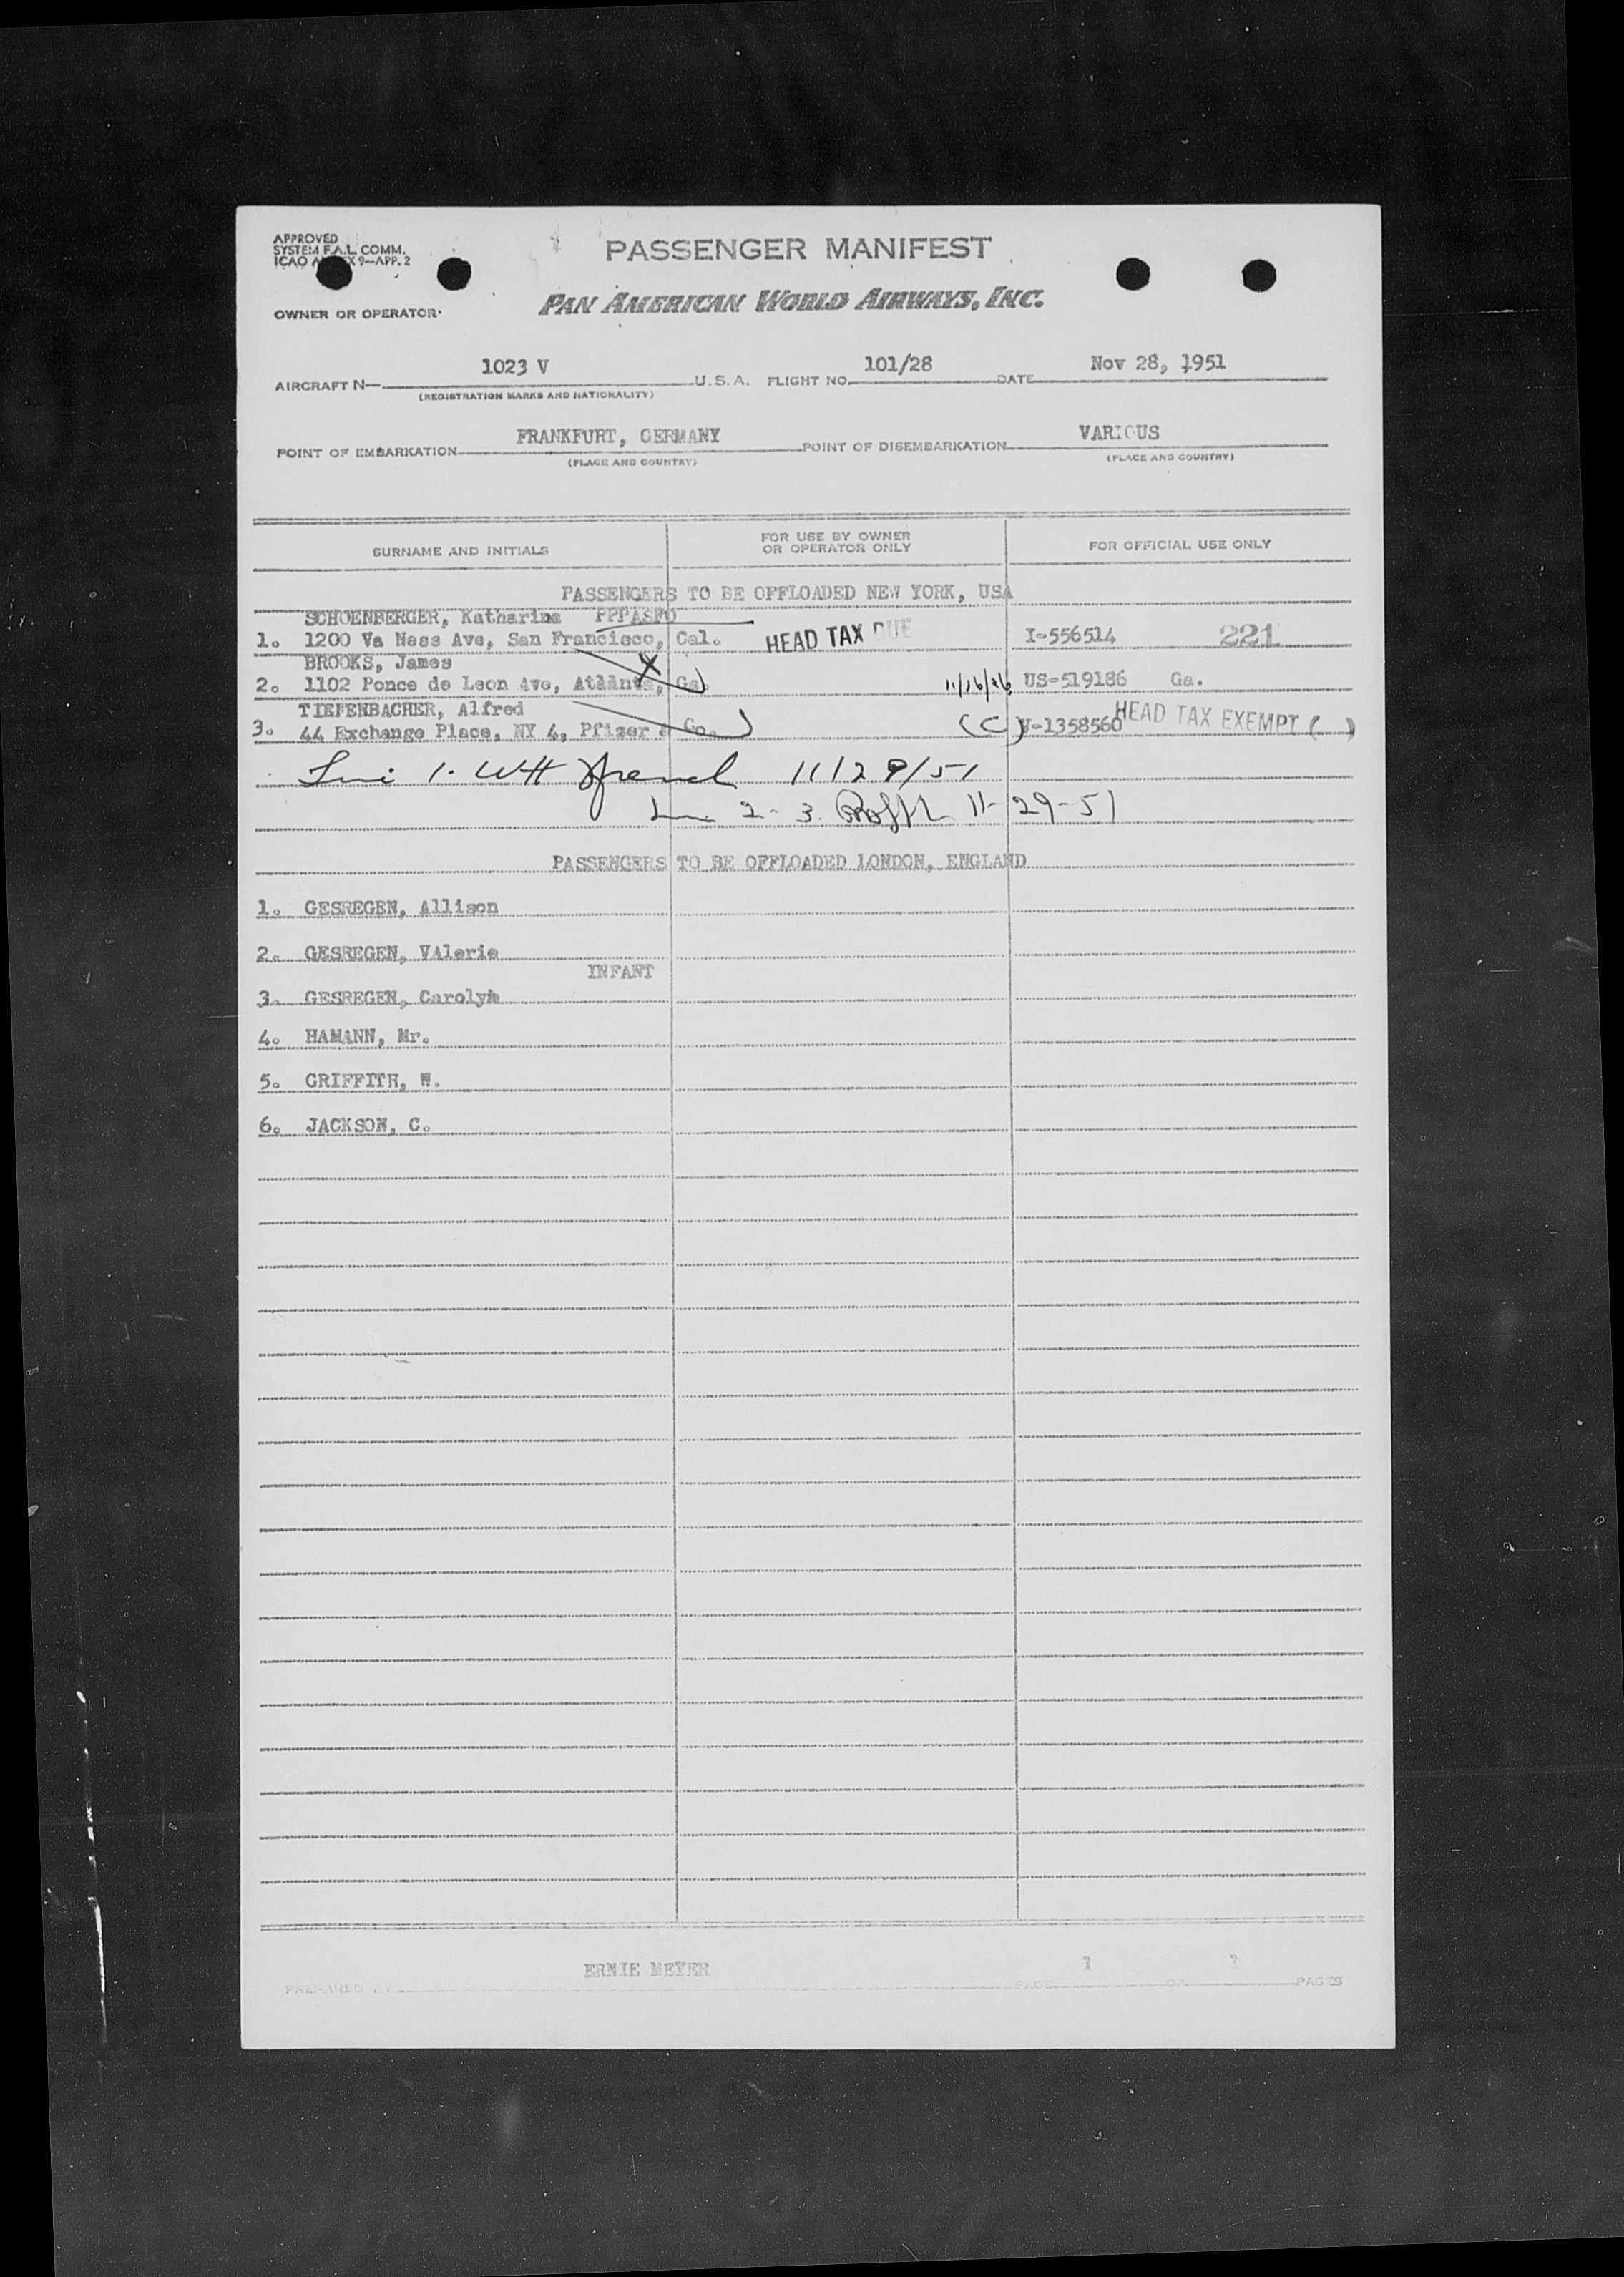 APPROVED
SYSTEM F.A.L. COMM.
ICAO 9-APP. 2
PASSENGER MANIFEST
OWNER OR OPERATOR
PAN AMERICAN WORLD AIRWAYS, INC.
AIRCRAFT N- 1023 V U.S.A. FLIGHT NO. 101/28 DATE Nov 28, 1951
(REGISTRATION MARKS AND NATIONALITY)
POINT OF EMBARKATION FRANKFURT, GERMANY POINT OF DISEMBARKATION VARIOUS
(PLACE AND COUNTRY) (PLACE AND COUNTRY)
SURNAME AND INITIALS FOR USE BY OWNER OR OPERATOR ONLY FOR OFFICIAL USE ONLY
PASSENGERS TO BE OFFLOADED NEW YORK, USA
SCHOENBERGER, Katharina
1. 1200 Va Ness Ave, San Francisco, Cal. HEAD TAX DUE I-556514 221
BROOKS, James X
2. 1102 Ponce de Leon Ave, Ga. 11/16/26 US-519186 Ga.
TIEFENBACHER, Alfred
3. 44 Exchange Place, NY 4, Pfizer & Co. (C) V-1358560 HEAD TAX EXEMPT ( )
1. 11/29/51
2-3. 11-29-51
PASSENGERS TO BE OFFLOADED LONDON, ENGLAND
1. GESREGEN, Allison
2. GESREGEN, VAlerie
INFANT
3. GESREGEN, Carolyn
4. HAMANN, Mr.
5. GRIFFITH, W.
6. JACKSON, C.
PREPARED BY ERNIE MEYER PAGE 1 OF PAGES